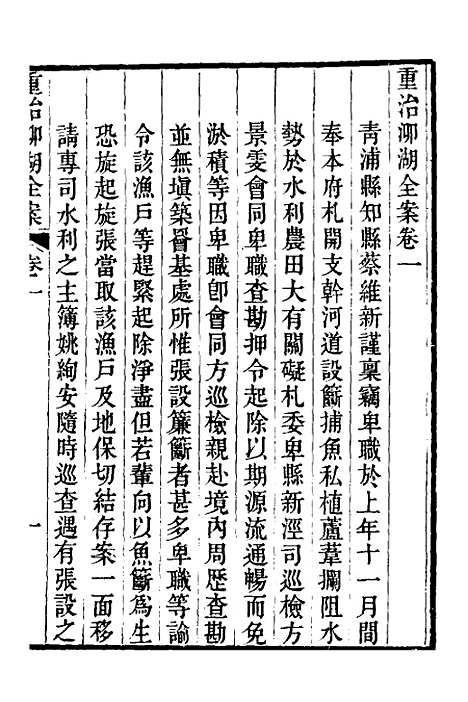 重治泖湖全案卷一
青浦縣知縣蔡維新謹稟竊卑職於上年十一月間
奉本府札開支幹河道設籪捕魚私植蘆葦攔阻水
勢於水利農田大有關礙札委卑縣新涇司巡檢方
景雯會同卑職查勘押令起除以期源流通暢而免
淤積等因卑職卽會同方巡檢親赴境內周歷查勘
並無塡築罾基處所惟張設簾籪者甚多卑職等諭
令該漁戶等趕緊起除淨盡但若輩向以魚籪爲生
恐旋起旋張當取該漁戶及地保切結存案一面移
請專司水利之主簿姚絢安隨時巡查遇有張設之
重治泖湖全案
卷一
一